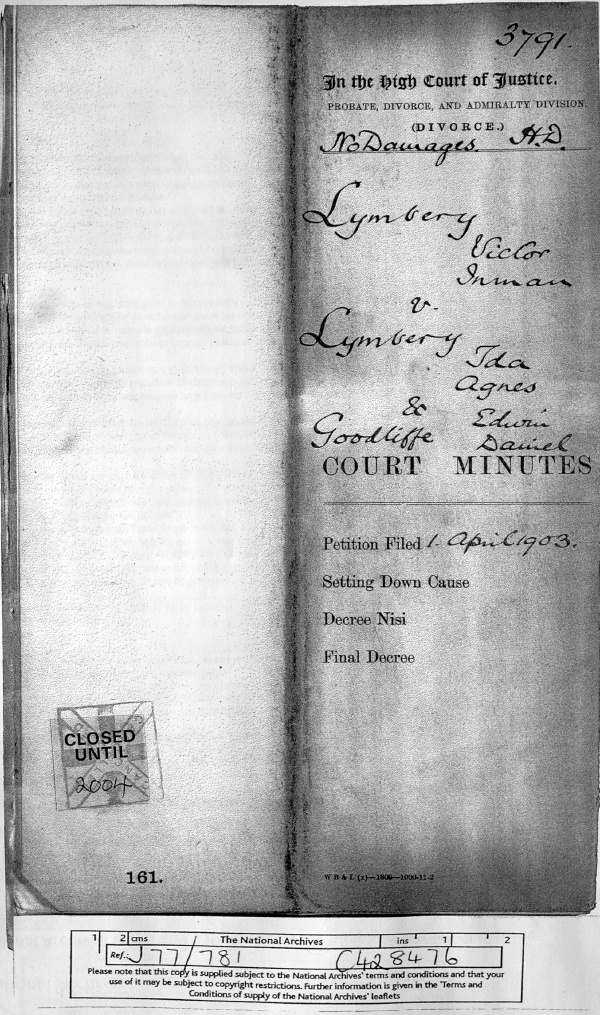 3791.
In the High Court of Justice.
PROBATE, DIVORCE, AND ADMIRALTY DIVISION.
(DIVORCE.)
No Damages. H.D.
Lymbery
Victor
Inman
v.
Lymbery
Ida
Agnes
&
Goodliffe
Edwin
Daniel
COURT MINUTES
Petition Filed 1. April 1903.
Setting Down Cause
Decree Nisi
Final Decree
CLOSED
UNTIL
2004
161.
W B & L
1 2 cms The National Archives ins 1 2
Ref.: J 77/781 C428476
Please note that this copy is supplied subject to the National Archives' terms and conditions and that your
use of it may be subject to copyright restrictions. Further information is given in the 'Terms and
Conditions of supply of the National Archives' leaflets